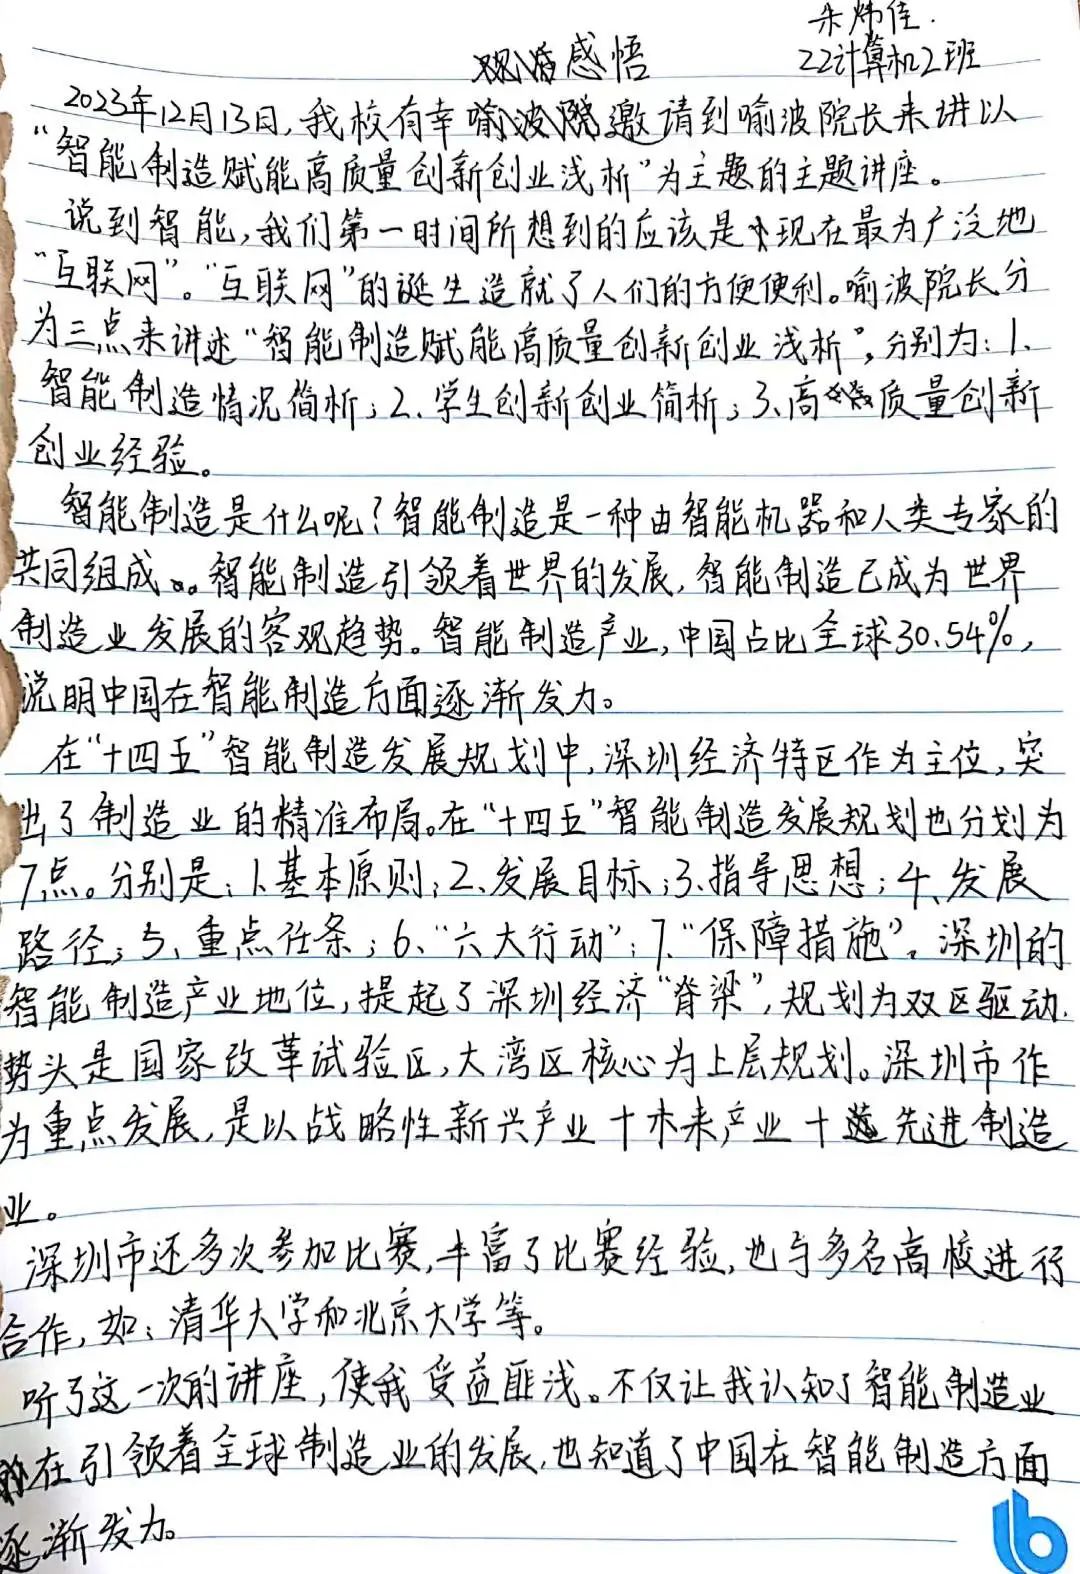 朱炜佳.
观后感悟
22计算机2班
2023年12月13日,我校有幸邀请到喻波院长来讲以
“智能制造赋能高质量创新创业浅析”为主题的主题讲座。
说到智能,我们第一时间所想到的应该是现在最为广泛地
“互联网”。“互联网”的诞生造就了人们的方便便利。喻波院长分
为三点来讲述“智能制造赋能高质量创新创业浅析”,分别为:1.
智能制造情况简析;2、学生创新创业简析;3、高质量创新
创业经验。
智能制造是什么呢?智能制造是一种由智能机器和人类专家的
共同组成。智能制造引领着世界的发展,智能制造已成为世界
制造业发展的客观趋势。智能制造产业,中国占比全球30.54%,
说明中国在智能制造方面逐渐发力。
在“十四五”智能制造发展规划中,深圳经济特区作为主位,突
出了制造业的精准布局。在“十四五”智能制造发展规划也分划为
7点。分别是:1.基本原则;2、发展目标;3.指导思想;4、发展
路径;5、重点任条;6、“六大行动”;7.“保障措施”。深圳的
智能制造产业地位,提起了深圳经济“脊梁”,规划为双区驱动.
势头是国家改革试验区,大湾区核心为上层规划。深圳市作
为重点发展,是以战略性新兴产业+木来产业+先进制造
业。
深圳市还多次参加比赛,丰富了比赛经验,也与多名高校进行
合作,如:清华大学和北京大学等。
听了这一次的讲座,使我受益匪浅。不仅让我认知了智能制造业
在引领着全球制造业的发展,也知道了中国在智能制造方面
逐渐发力。